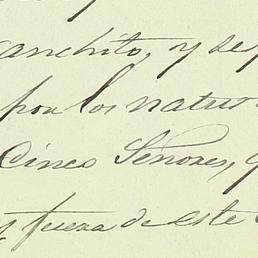 anchito, y de
por los natu
Cinco Señores,
fuera de este